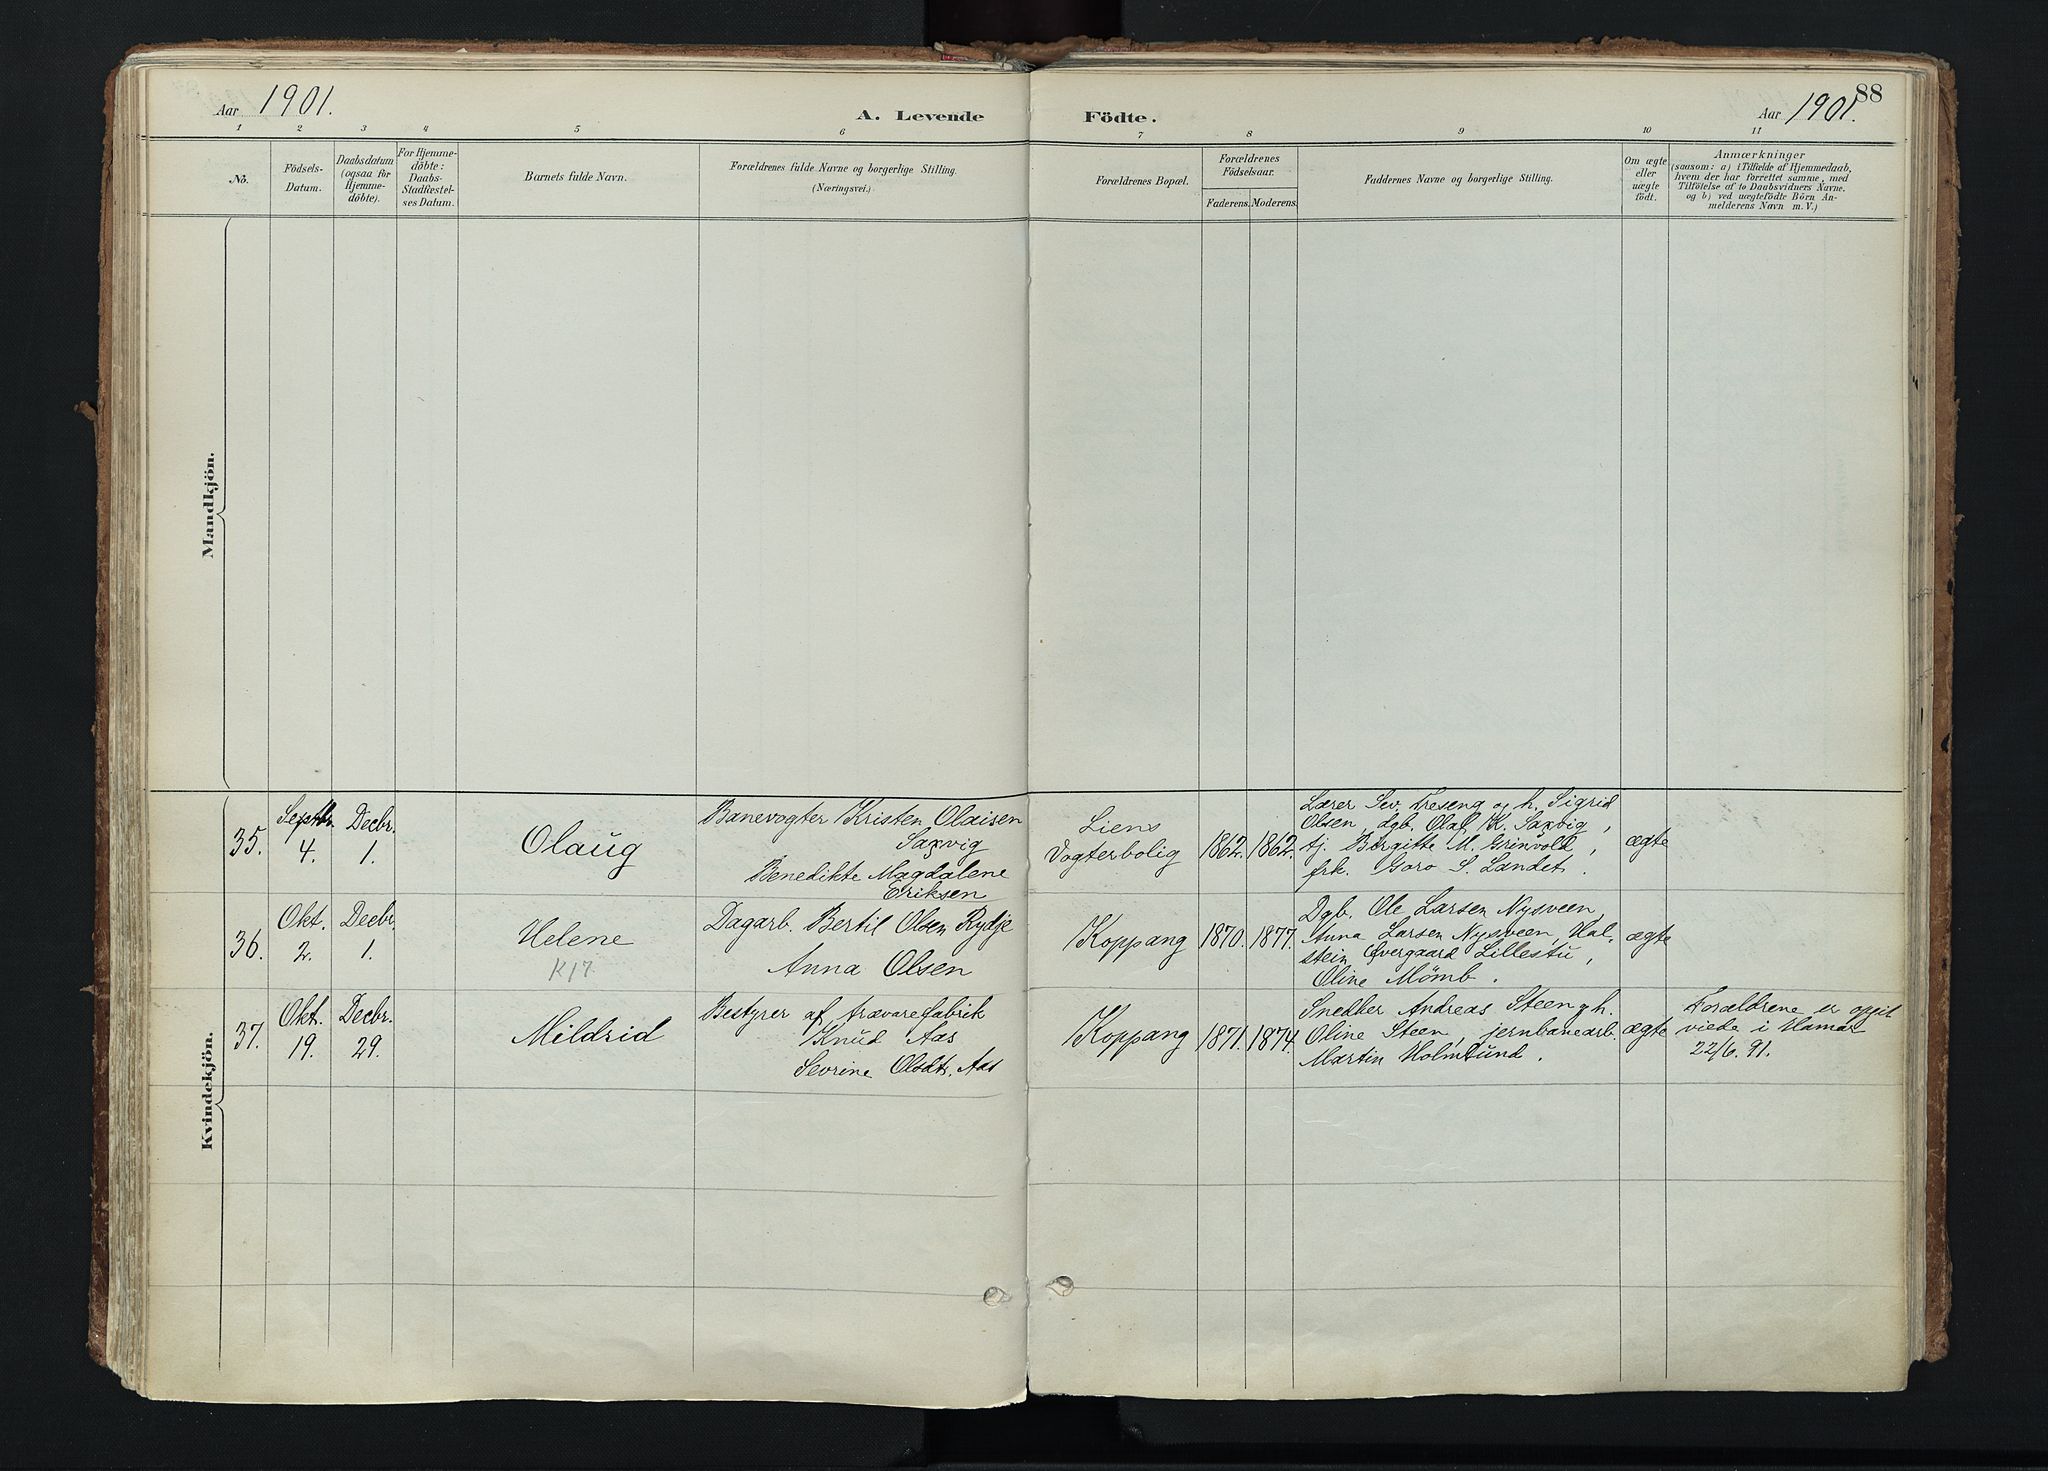 88
Aar 1901.
A. Levende Födte.
Aar 1901.
1 2 3 4 5 6 7 8 9 10 11
No.
Födsels-
Datum.
Daabsdatum
(ogsaa for
Hjemme-
döbte).
For Hjemme-
döbte:
Daabs-
Stadfæstel-
ses Datum.
Barnets fulde Navn.
Forældrenes fulde Navne og borgerlige Stilling.
(Næringsvei.)
Forældrenes Bopæl.
Forældrenes
Födselsaar.
Faderens. Moderens.
Faddernes Navne og borgerlige Stilling.
Om ægte
eller
uægte
födt.
Anmærkninger
(saasom: a) i Tilfælde af Hjemmedaab,
hvem der har forrettet samme, med
Tilföielse af to Daabsvidners Navne.
og b) ved uægtefödte Börn An-
melderens Navn m. V.)
Mandkjön.
Kvindekjön.
35.
Septbr.
4.
Decbr.
1.
Olaug
Banevogter Kristen Olaisen
Saxvig
Benedikte Magdalene
Eriksen
Liens
Vogterbolig
1862.
1862.
Lærer Sev. Treseng og h. Sigrid
Olsen, dgb. Olaf K. Saxvig,
tj. Birgitte M. Grinvold,
frk. Goro S. Landet.
ægte
36.
Okt.
2.
Decbr.
1.
Helene
K17.
Dagarb. Bertil Olsen Rydje
Anna Olsen
Koppang
1870.
1877.
Dgb. Ole Larsen Nysveen,
Anna Larsen Nysveen, Hal-
stein Øvergaard Lillestu,
Oline Mömb.
ægte
37.
Okt.
19.
Decbr.
29.
Mildrid
Bestyrer af trævarefabrik
Knud Aas
Sevrine Olsdtr. Aas
Koppang
1871.
1874.
Snedker Andreas Steen og h.
Oline Steen, jernbanearb.
Martin Holmlund.
ægte
Forældrene er opgit
viede i Hamar
22/6. 91.